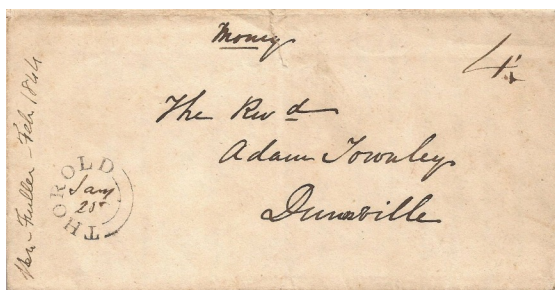 Money
4½
The Revd
Adam Townley
Dunnville
THOROLD
Jany
25
Fuller - Feb 1844